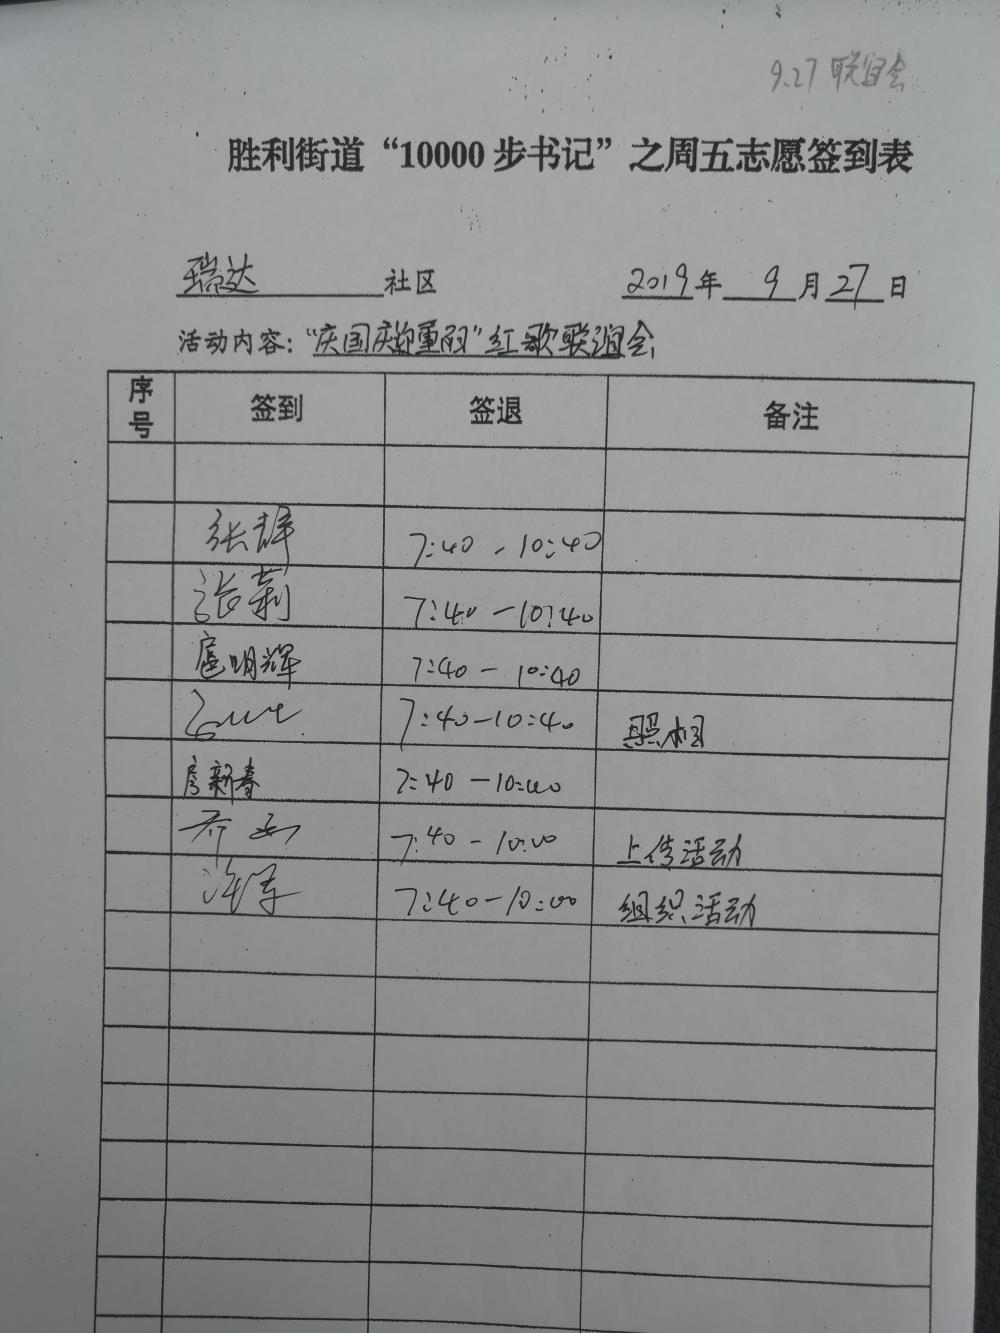 9.27 联谊会
胜利街道“10000步书记”之周五志愿签到表
瑞达 社区 2019年 9月27日
活动内容：“庆国庆迎重阳”红歌联谊会
序号 签到 签退 备注
张静 7:40 - 10:40
张莉 7:40 - 10:40
扈明辉 7:40 - 10:40
7:40 - 10:40 照相
房新春 7:40 - 10:40
乔 7:40 - 10:00 上传活动
7:40 - 10:00 组织活动